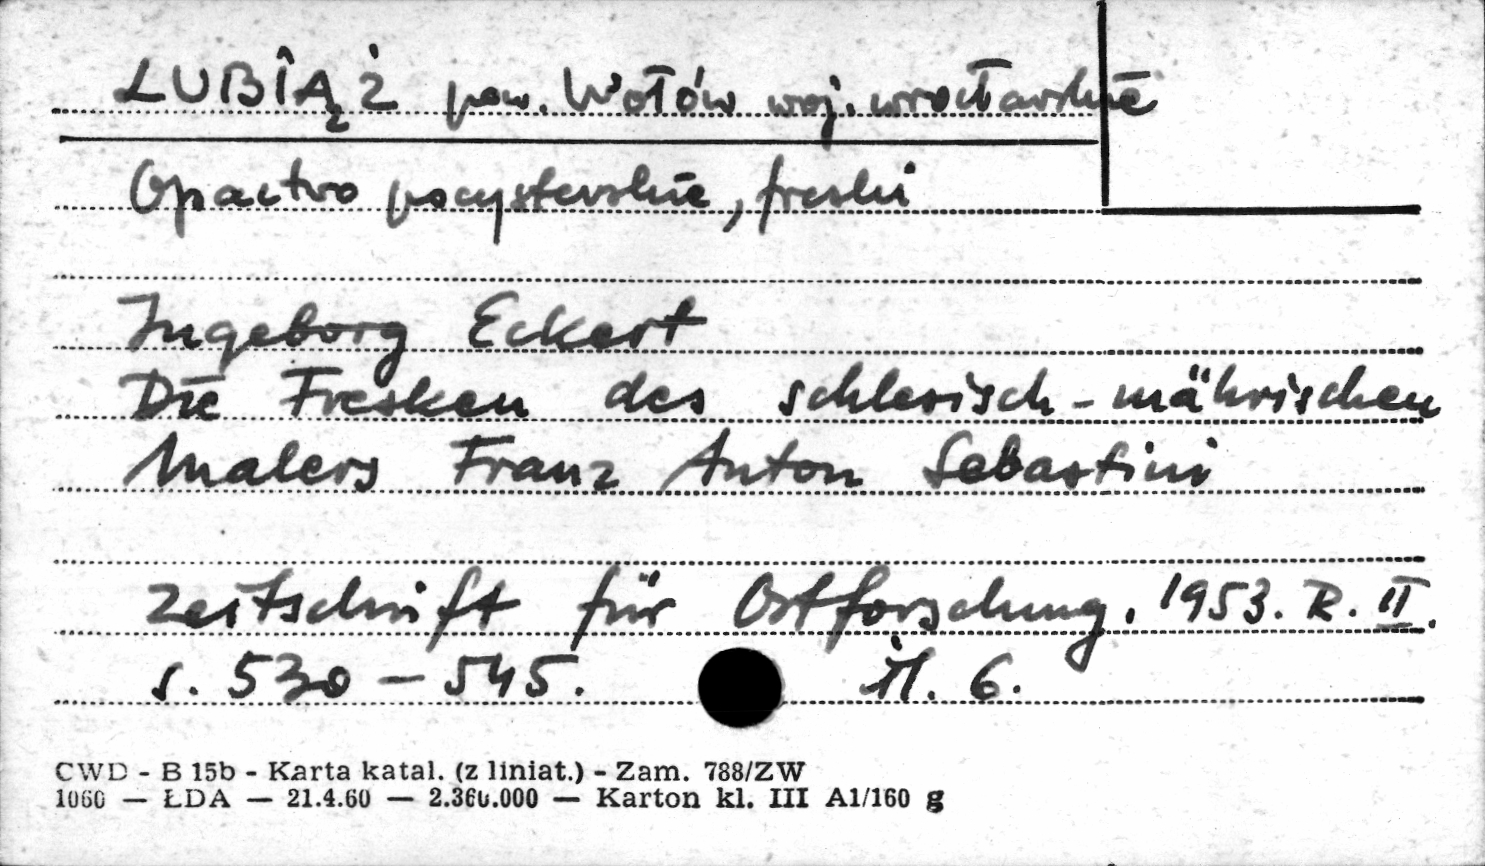 LUBIĄŻ pow. Wołów woj. wrocławskie
Opactwo pocysterskie, freski
Ingeborg Eckert
Die Fresken des schlesisch-mährischen
Malers Franz Anton Sebastini
Zeitschrift für Ostforschung. 1953. R. II.
s. 530 — 545. il. 6.
CWD - B 15b - Karta katal. (z liniat.) - Zam. 788/ZW
1060 — ŁDA — 21.4.60 — 2.360.000 — Karton kl. III A1/160 g